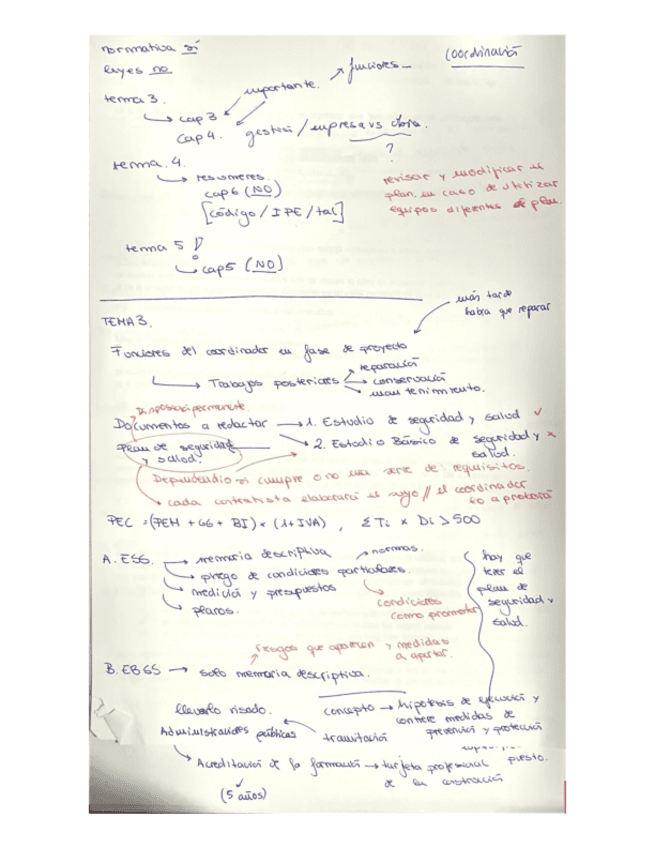 normativa sí
coordinación
leyes no
funciones
importante.
tema 3.
cap 3
cap 4. gestión / empresa vs obra.
?
tema. 4.
resúmenes.
cap 6 (NO)
[código / IPE / tal]
revisar y modificar el
plan, en caso de utilizar
equipos diferentes al plan.
tema 5 !
cap 5 (NO)
más tarde
habrá que reparar
TEMA 3.
Funciones del coordinador en fase de proyecto
Trabajos posteriores
reparación
conservación
mantenimiento.
Disposición permanente.
Documentos a redactar → 1. Estudio de seguridad y salud ✓
2. Estudio Básico de seguridad y salud. ×
Plan de seguridad
y salud.
Dependiendo si cumple o no una serie de requisitos.
cada contratista elaborará el suyo // el coordinador
lo aprobará
PEC = (PEM + GG + BI) × (1 + IVA) , Σ Ti × Di > 500
A. ESS. → memoria descriptiva
normas.
pliego de condiciones particulares.
medición y presupuestos
planos.
condiciones
como promotor
hay que
tener el
plan de
seguridad y
salud.
riesgos que aparecen y medidas
a aportar.
B. EBSS → solo memoria descriptiva.
llevarlo visado.
concepto → hipótesis de ejecución y
contiene medidas de
prevención y protección
Administraciones públicas
tramitación
puesto.
Acreditación de la formación → tarjeta profesional
de la construcción
(5 años)